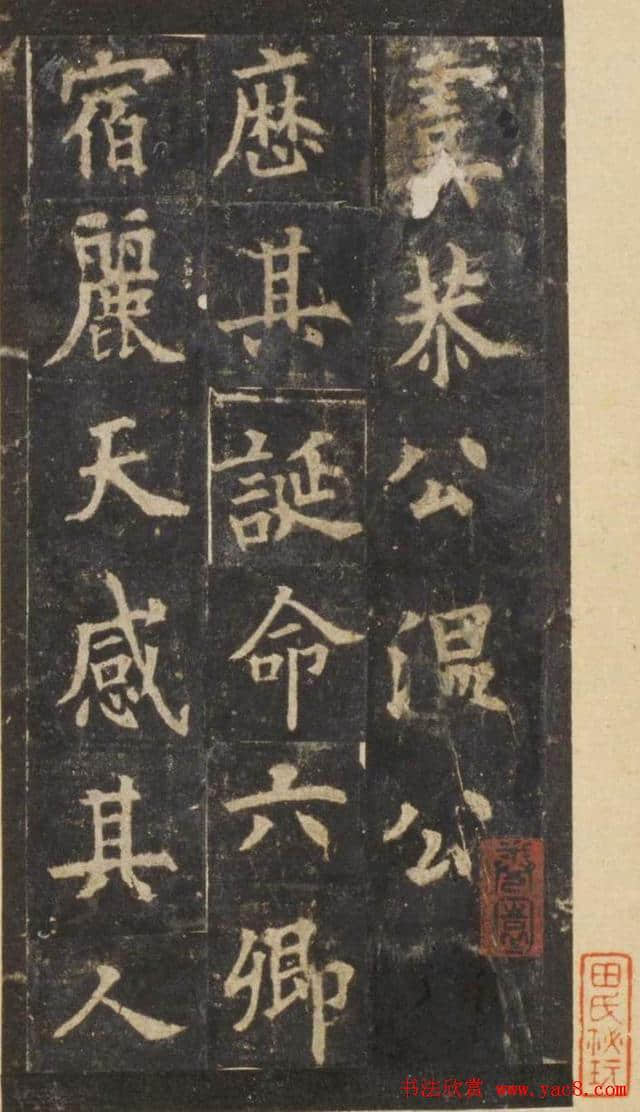 虞恭公温公
歷其誕命六卿
宿麗天感其人
田氏秘玩
书法欣赏 www.yac8.com